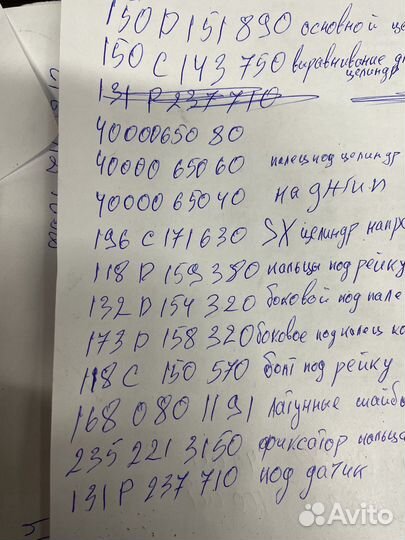 150 D 151 890 основной це
150 C 143 750 виравнивание дж
цилиндр
131 P 237 710
40000650 80
40000 650 60 палец под цилиндр
40000 650 40 на джип
196 C 171 630 SX цилиндр напра
118 D 159 380 пальцы под рейку
132 D 154 320 боковой под пале
173 D 158 320 боковое под палец ко
118 C 150 570 болт под рейку
168 080 1191 латунные шайбы
235 221 3150 фиксатор пальца
131 P 237 710 под датик
Avito